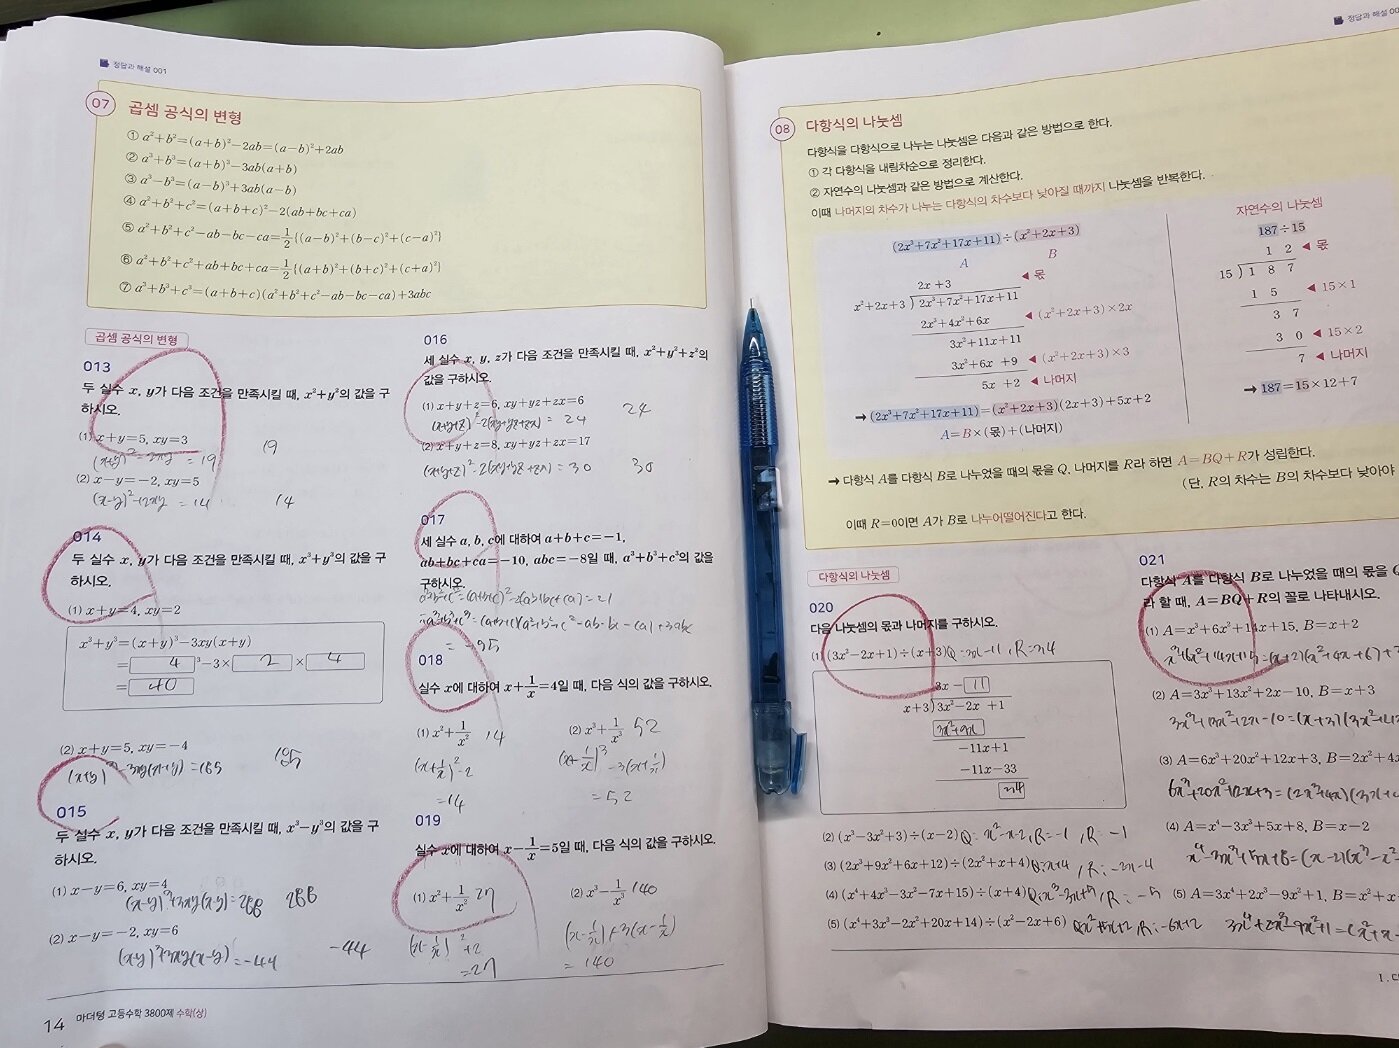 정답과 해설 001
07 곱셈 공식의 변형
① a²+b²=(a+b)²−2ab=(a−b)²+2ab
② a³+b³=(a+b)³−3ab(a+b)
③ a³−b³=(a−b)³+3ab(a−b)
④ a²+b²+c²=(a+b+c)²−2(ab+bc+ca)
⑤ a²+b²+c²−ab−bc−ca=1/2{(a−b)²+(b−c)²+(c−a)²}
⑥ a²+b²+c²+ab+bc+ca=1/2{(a+b)²+(b+c)²+(c+a)²}
⑦ a³+b³+c³=(a+b+c)(a²+b²+c²−ab−bc−ca)+3abc
곱셈 공식의 변형
013
두 실수 x, y가 다음 조건을 만족시킬 때, x²+y²의 값을 구
하시오.
(1) x+y=5, xy=3
(x+y)²−2xy =19 19
(2) x−y=−2, xy=5
(x−y)²+2xy =14 14
014
두 실수 x, y가 다음 조건을 만족시킬 때, x³+y³의 값을 구
하시오.
(1) x+y=4, xy=2
x³+y³=(x+y)³−3xy(x+y)
= 4 ³−3× 2 × 4
= 40
(2) x+y=5, xy=−4
(x+y)³−3xy(x+y)=185 185
015
두 실수 x, y가 다음 조건을 만족시킬 때, x³−y³의 값을 구
하시오.
(1) x−y=6, xy=4
(x−y)³+3xy(x−y)=288 288
(2) x−y=−2, xy=6
(x−y)³+3xy(x−y)=−44 −44
14 마더텅 고등수학 3800제 수학(상)
016
세 실수 x, y, z가 다음 조건을 만족시킬 때, x²+y²+z²의
값을 구하시오.
(1) x+y+z=6, xy+yz+zx=6
(x+y+z)²−2(xy+yz+zx) = 24 24
(2) x+y+z=8, xy+yz+zx=17
(x+y+z)²−2(xy+yz+zx)=30 30
017
세 실수 a, b, c에 대하여 a+b+c=−1,
ab+bc+ca=−10, abc=−8일 때, a³+b³+c³의 값을
구하시오.
a²+b²+c²=(a+b+c)²−2(ab+bc+ca)=21
a³+b³+c³=(a+b+c)(a²+b²+c²−ab−bc−ca)+3abc
018
실수 x에 대하여 x+1/x=4일 때, 다음 식의 값을 구하시오.
(1) x²+1/x² 14 (2) x³+1/x³ 52
(x+1/x)²−2 (x+1/x)³−3(x+1/x)
=14 =52
019
실수 x에 대하여 x−1/x=5일 때, 다음 식의 값을 구하시오.
(1) x²+1/x² 27 (2) x³−1/x³ 140
(x−1/x)²+2 (x−1/x)³+3(x−1/x)
=27 =140
정답과 해설 00
08 다항식의 나눗셈
다항식을 다항식으로 나누는 나눗셈은 다음과 같은 방법으로 한다.
① 각 다항식을 내림차순으로 정리한다.
② 자연수의 나눗셈과 같은 방법으로 계산한다.
이때 나머지의 차수가 나누는 다항식의 차수보다 낮아질 때까지 나눗셈을 반복한다.
(2x³+7x²+17x+11)÷(x²+2x+3)
A B
2x+3 ◀ 몫
x²+2x+3)2x³+7x²+17x+11
2x³+4x²+6x ◀ (x²+2x+3)×2x
3x²+11x+11
3x²+6x +9 ◀ (x²+2x+3)×3
5x +2 ◀ 나머지
➞ (2x³+7x²+17x+11)=(x²+2x+3)(2x+3)+5x+2
A=B×(몫)+(나머지)
자연수의 나눗셈
187÷15
1 2 ◀ 몫
15)1 8 7
1 5 ◀ 15×1
3 7
3 0 ◀ 15×2
7 ◀ 나머지
➞ 187=15×12+7
➞ 다항식 A를 다항식 B로 나누었을 때의 몫을 Q, 나머지를 R라 하면 A=BQ+R가 성립한다.
(단, R의 차수는 B의 차수보다 낮아야
이때 R=0이면 A가 B로 나누어떨어진다고 한다.
다항식의 나눗셈
020
다음 나눗셈의 몫과 나머지를 구하시오.
(1) (3x²−2x+1)÷(x+3) Q=3x−11, R=34
3x− 11
x+3)3x²−2x +1
3x²+9x
−11x+1
−11x−33
34
(2) (x³−3x²+3)÷(x−2) Q: x²−x−2, R=−1, R:−1
(3) (2x³+9x²+6x+12)÷(2x²+x+4) Q:x+4, R:−2x−4
(4) (x⁴+4x³−3x²−7x+15)÷(x+4) Q:x³−3x+5, R:−5
(5) (x⁴+3x³−2x²+20x+14)÷(x²−2x+6) Q:x²+5x+2, R:−6x+2
021
다항식 A를 다항식 B로 나누었을 때의 몫을 Q
라 할 때, A=BQ+R의 꼴로 나타내시오.
(1) A=x³+6x²+14x+15, B=x+2
x³+6x²+14x+15=(x+2)(x²+4x+6)+3
(2) A=3x³+13x²+2x−10, B=x+3
3x³+13x²+2x−10=(x+3)(3x²+4x
(3) A=6x³+20x²+12x+3, B=2x²+4x
6x³+20x²+12x+3=(2x²+4x)(3x+4
(4) A=x⁴−3x³+5x+8, B=x−2
x⁴−3x³+5x+8=(x−2)(x³−x²
(5) A=3x⁴+2x³−9x²+1, B=x²+x
3x⁴+2x³−9x²+1=(x²+x−